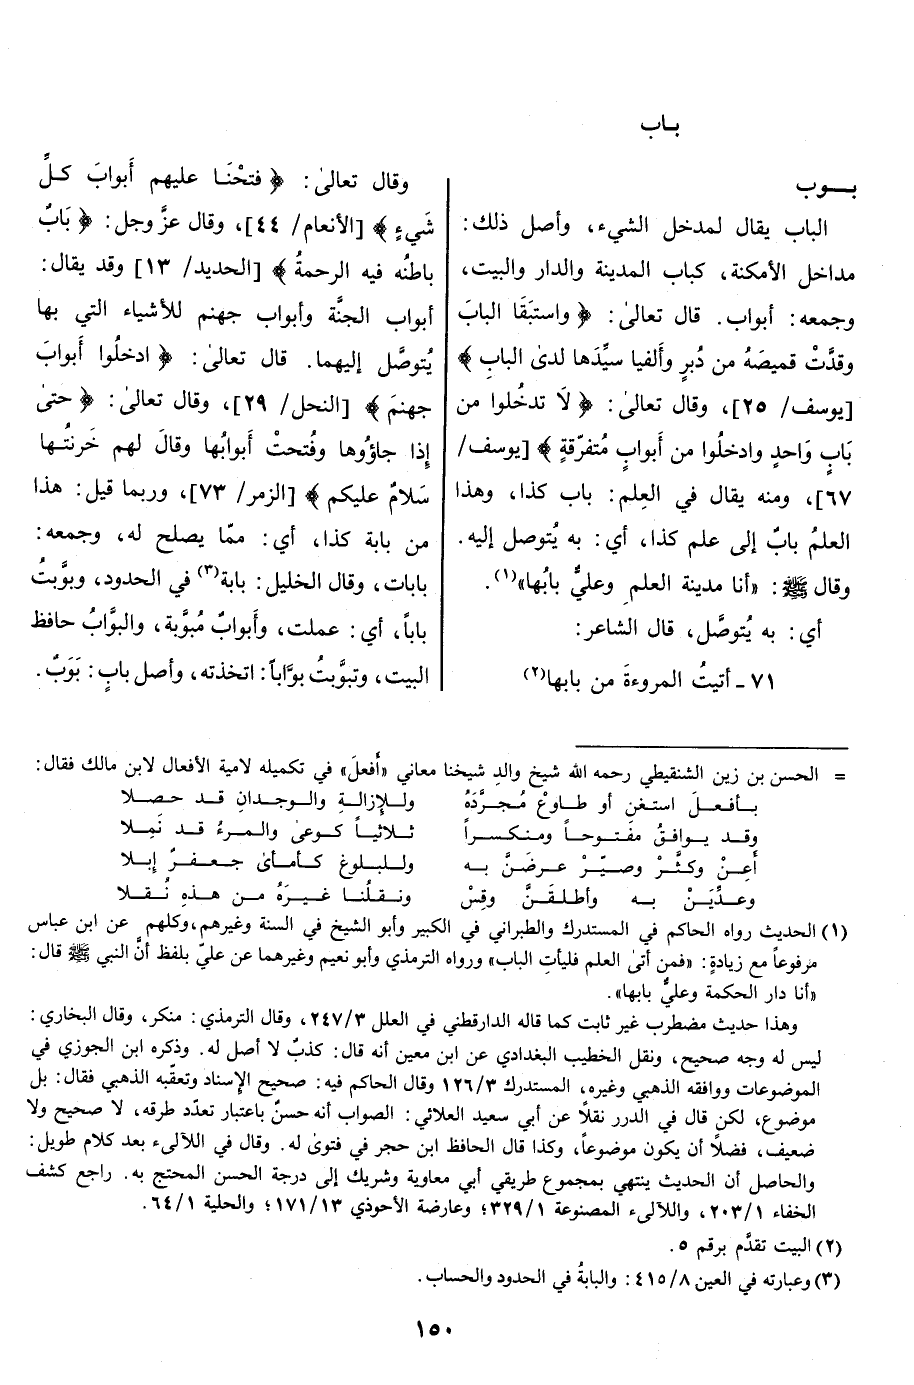 بـاب
بـــوب
الباب يقال لمدخل الشيء، وأصل ذلك:
مداخل الأمكنة، كباب المدينة والدار والبيت،
وجمعه: أبواب. قال تعالىٰ: ﴿ واستبَقَا البابَ
وقدَّتْ قميصَهُ من دُبرٍ وألفيا سيِّدَها لدىٰ البابِ ﴾
[يوسف/ ٢٥]، وقال تعالىٰ: ﴿ لاَ تدخُلوا من
بَابٍ وَاحدٍ وادخلُوا من أبوابٍ مُتفرّقةٍ ﴾ [يوسف/
٦٧]، ومنه يقال في العِلم: باب كذا، وهذا
العلمُ بابٌ إلى علم كذا، أي: به يُتوصل إليه.
وقال ﷺ: «أنا مدينة العلمِ وعليٌّ بابُها»(١).
أي: به يُتوصَّل، قال الشاعر:
٧١ - أتيتُ المروءةَ من بابها(٢)
وقال تعالىٰ: ﴿ فتحْنَا عليهم أبوابَ كلِّ
شَيءٍ ﴾ [الأنعام/ ٤٤]، وقال عزَّ وجل: ﴿ بَابٌ
باطنُه فيه الرحمةُ ﴾ [الحديد/ ١٣] وقد يقال:
أبواب الجنَّة وأبواب جهنم للأشياء التي بها
يُتوصَّل إليهما. قال تعالىٰ: ﴿ ادخلُوا أبوابَ
جهنمَ ﴾ [النحل/ ٢٩]، وقال تعالىٰ: ﴿ حتىٰ
إذا جاؤُوها وفُتحتْ أبوابُها وقالَ لهم خَزنتُـها
سَلامٌ عليكم ﴾ [الزمر/ ٧٣]، وربما قيل: هذا
من بابة كذا، أي: ممّا يصلح له، وجمعه:
بابات، وقال الخليل: بابة(٣) في الحدود، وبوَّبتُ
باباً، أي: عملت، وأبوابٌ مُبوَّبة، والبوَّابُ حافظ
البيت، وتبوَّبتُ بوَّاباً: اتخذته، وأصل بابٍ: بَوَبٌ.
= الحسن بن زين الشنقيطي رحمه الله شيخ والدِ شيخنا معاني «أفعلَ» في تكميله لامية الأفعال لابن مالك فقال:
بـأفعـلَ استغنِ أو طـاوعْ مُـجرَّدَهُ ولـلإزالـةِ والـوجـدانِ قـد حـصـلا
وقـد يـوافقُ مفتـوحـاً ومنـكسـراً ثـلاثيـاً كـوعىٰ والـمرءُ قـد نَمِلا
أعِـنْ وكثِّـرْ وصيـّرْ عـرضَنَّ بـه ولـلبلـوغِ كـأمـأىٰ جـعفـرٌ إبـلا
وعـدِّيَـنْ بـه وأطلـقَـنَّ وقِسْ ونقـلُنـا غيـرَهُ مـن هـذه نُـقـلا
(١) الحديث رواه الحاكم في المستدرك والطبراني في الكبير وأبو الشيخ في السنة وغيرهم، وكلهم عن ابن عباس
مرفوعاً مع زيادةٍ: «فمن أتىٰ العلم فليأتِ الباب» ورواه الترمذي وأبو نعيم وغيرهما عن عليّ بلفظ أنَّ النبي ﷺ قال:
«أنا دار الحكمة وعليٌّ بابها».
وهذا حديث مضطرب غير ثابت كما قاله الدارقطني في العلل ٢٤٧/٣، وقال الترمذي: منكر، وقال البخاري:
ليس له وجه صحيح، ونقل الخطيب البغدادي عن ابن معين أنه قال: كذبٌ لا أصل له. وذكره ابن الجوزي في
الموضوعات ووافقه الذهبي وغيره، المستدرك ١٢٦/٣ وقال الحاكم فيه: صحيح الإسناد وتعقّبه الذهبي فقال: بل
موضوع، لكن قال في الدرر نقلاً عن أبي سعيد العلائي: الصواب أنه حسنٌ باعتبار تعدّد طرقه، لا صحيح ولا
ضعيف، فضلاً أن يكون موضوعاً، وكذا قال الحافظ ابن حجر في فتوىٰ له. وقال في اللآلىء بعد كلام طويل:
والحاصل أن الحديث ينتهي بمجموع طريقي أبي معاوية وشريك إلى درجة الحسن المحتج به. راجع كشف
الخفاء ٢٠٣/١، واللآلىء المصنوعة ٣٢٩/١؛ وعارضة الأحوذي ١٧١/١٣؛ والحلية ٦٤/١.
(٢) البيت تقدَّم برقم ٥.
(٣) وعبارته في العين ٤١٥/٨: والبابةُ في الحدود والحساب.
١٥٠